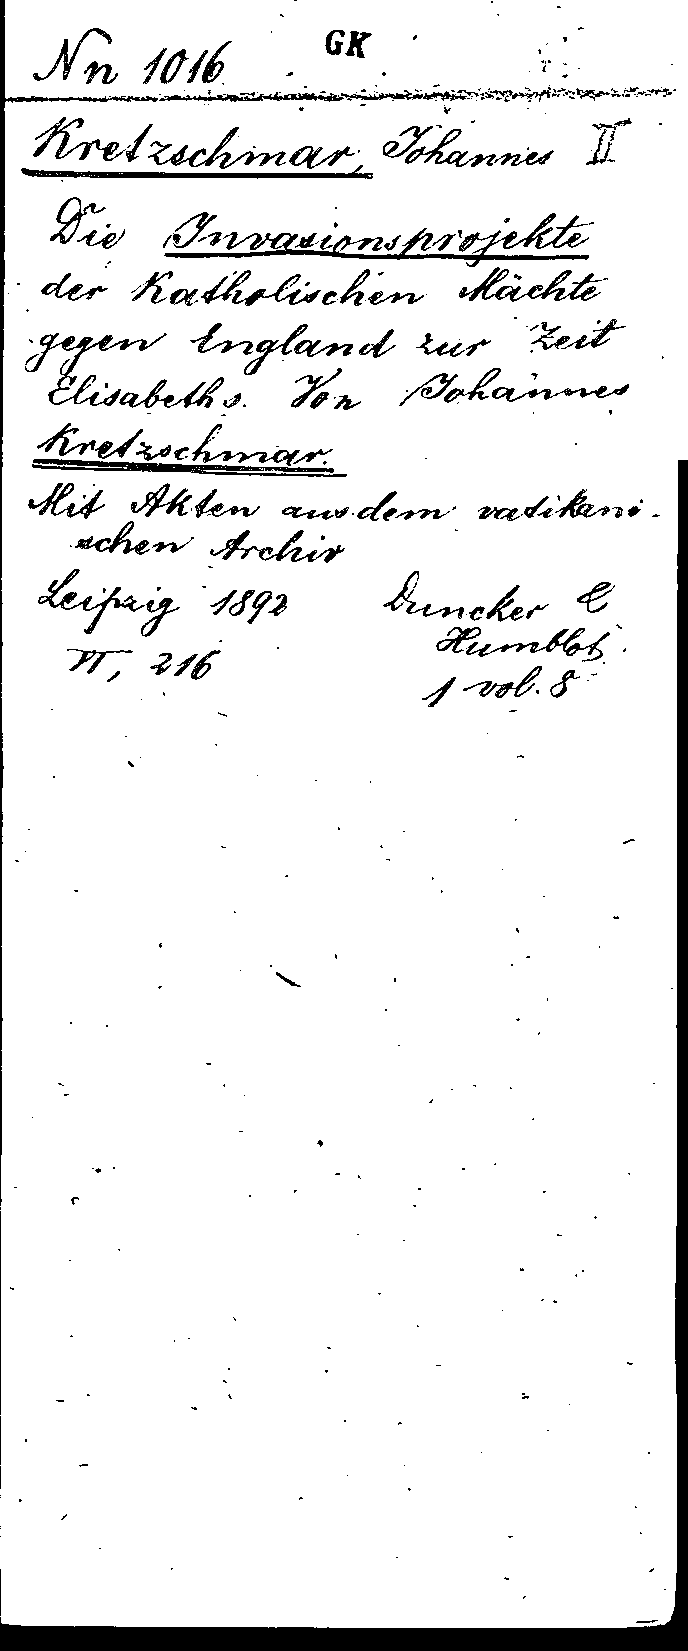 Nn 1016 GK
Kretzschmar, Johannes II
Die Invasionsprojekte
der katholischen Mächte
gegen England zur Zeit
Elisabeths. Von Johannes
Kretzschmar.
Mit Akten aus dem vatikani-
schen Archiv
Leipzig 1892 Duncker &
Humblot.
VI, 216
1 vol. 8